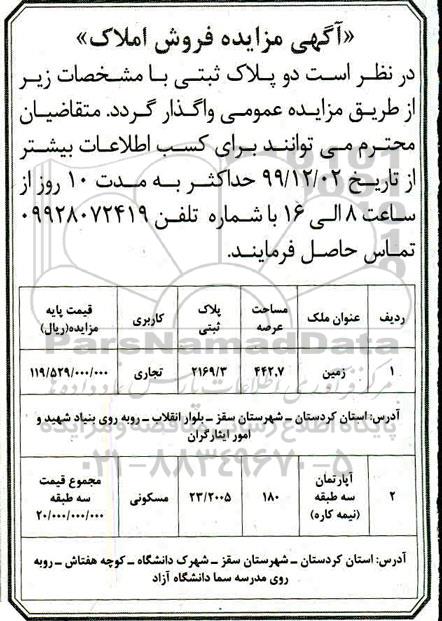 «آگهی مزایده فروش املاک»
در نظر است دو پلاک ثبتی با مشخصات زیر
از طریق مزایده عمومی واگذار گردد. متقاضیان
محترم می توانند برای کسب اطلاعات بیشتر
از تاریخ ۹۹/۱۲/۰۲ حداکثر به مدت ۱۰ روز از
ساعت ۸ الی ۱۶ با شماره تلفن ۰۹۹۲۸۰۷۲۴۱۹
تماس حاصل فرمایند.
ردیف عنوان ملک مساحت عرصه پلاک ثبتی کاربری قیمت پایه مزایده(ریال)
۱ زمین ۴۴۲,۷ ۲۱۶۹/۳ تجاری ۱۱۹/۵۲۹/۰۰۰/۰۰۰
آدرس: استان کردستان ـ شهرستان سقز ـ بلوار انقلاب ـ روبه روی بنیاد شهید و
امور ایثارگران
۲ آپارتمان سه طبقه (نیمه کاره) ۱۸۰ ۲۳/۲۰۰۵ مسکونی مجموع قیمت سه طبقه ۲۰/۰۰۰/۰۰۰/۰۰۰
آدرس: استان کردستان ـ شهرستان سقز ـ شهرک دانشگاه ـ کوچه هفتاش ـ روبه
روی مدرسه سما دانشگاه آزاد
ParsNamadData
۰۲۱-۸۸۳۴۹۶۷۰-۵